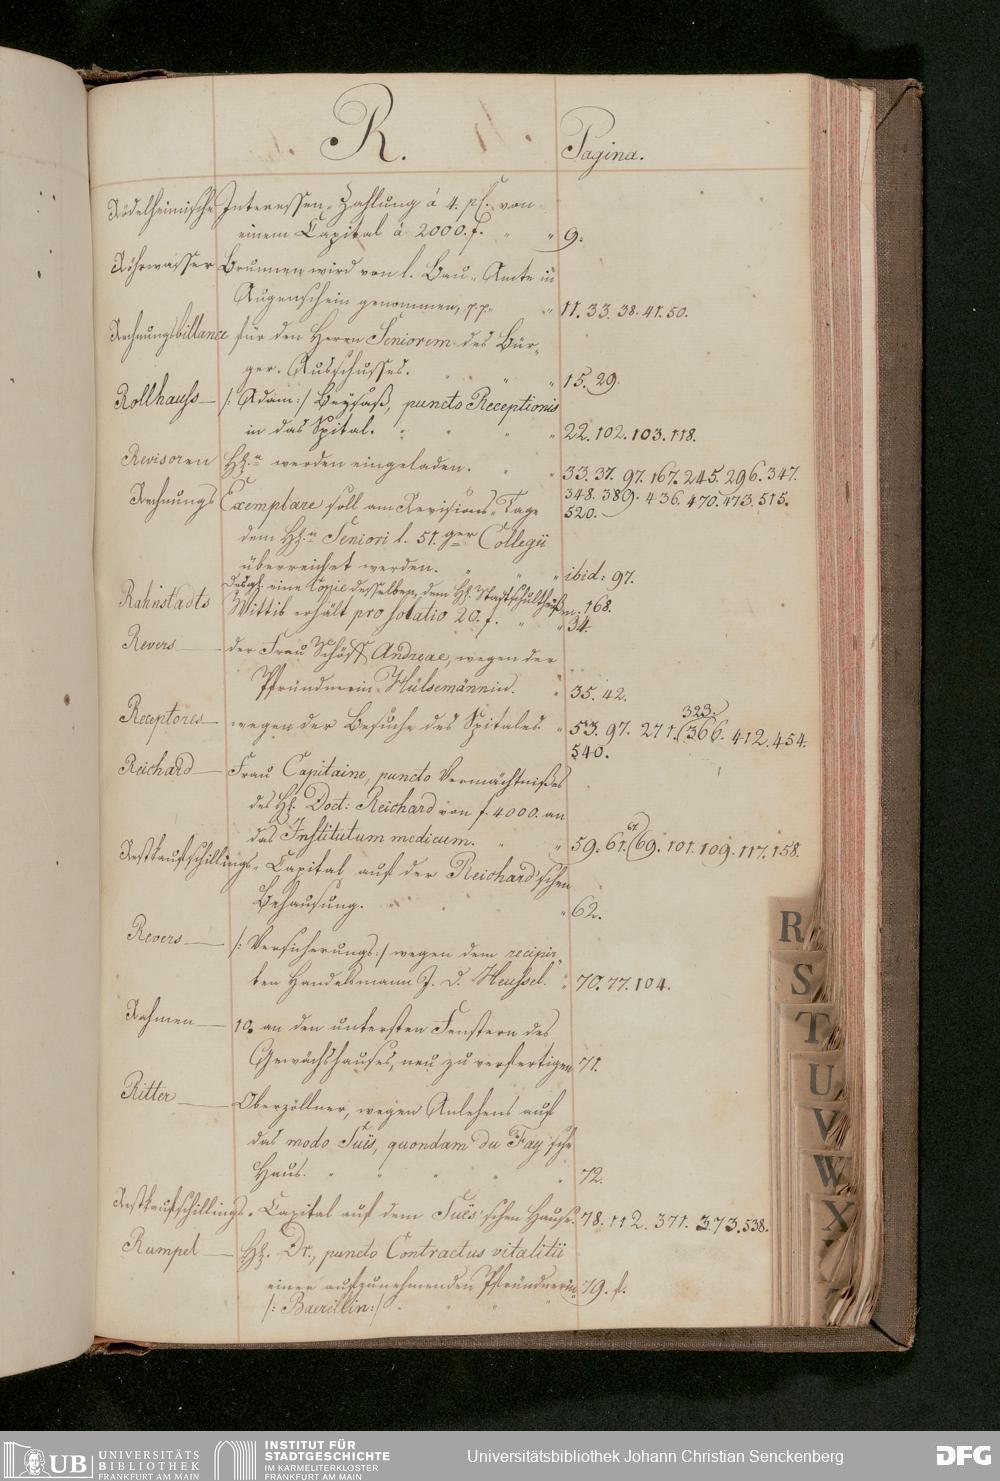 R.
Pagina.
Rödelheimische Interessen-Zahlung á 4. pf. von
einem Capital á 2000. f. " " 9.
Röhrwasser Brunnen wird von l. Bau-Amte in
Augenschein genommen, p.p. " 11. 33. 38. 41. 50.
Rechnungsbillance für den Herrn Seniorem des Bür-
ger-Ausschusses. " " 15. 29.
Rollhauss — /: Adam :/ Beysaß, puncto Receptionis
in das Spital. " " " " 22. 102. 103. 118.
Revisoren HH.n werden eingeladen. " " 33. 37. 97. 167. 245. 296. 347.
348. 389. 436. 470. 473. 515.
520.
Rechnungs Exemplare soll am Revisions-Tage
dem HH.n Seniori l. 51.ger Collegii
überreichet werden. " " " ibid: 97.
Desgl. eine Copie desselben, dem HH. Stadtschultheißen. 168.
Rahnstadts Wittib erhält pro solatio 20. f. " " 34.
Revers — der Frau Schöff Andreae, wegen der
Pfründnerin Hülsemännin. " 35. 42.
Receptores — wegen der Besuche des Spitales " 53. 97. 271. 323. 366. 412. 454.
540.
Reichard — Frau Capitaine, puncto Vermächtnißes
des HH. Doct: Reichard von f. 4000. an
das Institutum medicum. " " 59. 61. 67. 69. 101. 109. 117. 158.
Restkaufschillings-Capital auf der Reichard'schen
Behausung. " " 62.
Revers — /: Versicherungs :/ wegen dem recipir-
ten Handelsmann J. D. Heussel. " 70. 77. 104.
Rahmen — 10. an den untersten Fenstern des
Gewächshauses, neu zu verfertigen 71.
Ritter — Oberzöllner, wegen Anlehens auf
das modo Süës, quondam du Fay'sche
Haus. " " " 72.
Restkaufschillings-Capital auf dem Süës'schen Hause. 78. 112. 371. 373. 538.
Rumpel — HH. Dr., puncto Contractus vitalitii
einer aufzunehmenden Pfründnerin 79. f.
/: Baerillin :/ " " "
R
S
T
U
V
W
X
UB UNIVERSITÄTS
BIBLIOTHEK
FRANKFURT AM MAIN
INSTITUT FÜR
STADTGESCHICHTE
IM KARMELITERKLOSTER
FRANKFURT AM MAIN
Universitätsbibliothek Johann Christian Senckenberg
DFG